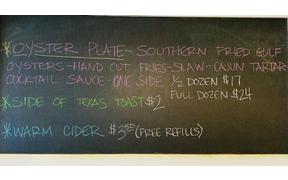 *OYSTER PLATE-SOUTHERN FRIED GULF
OYSTERS-HAND CUT FRIES-SLAW-CAJUN TARTAR
COCKTAIL SAUCE-ONE SIDE ½ DOZEN $17
FULL DOZEN $24
*SIDE OF TEXAS TOAST $2
*WARM CIDER $3.50 (FREE REFILLS)